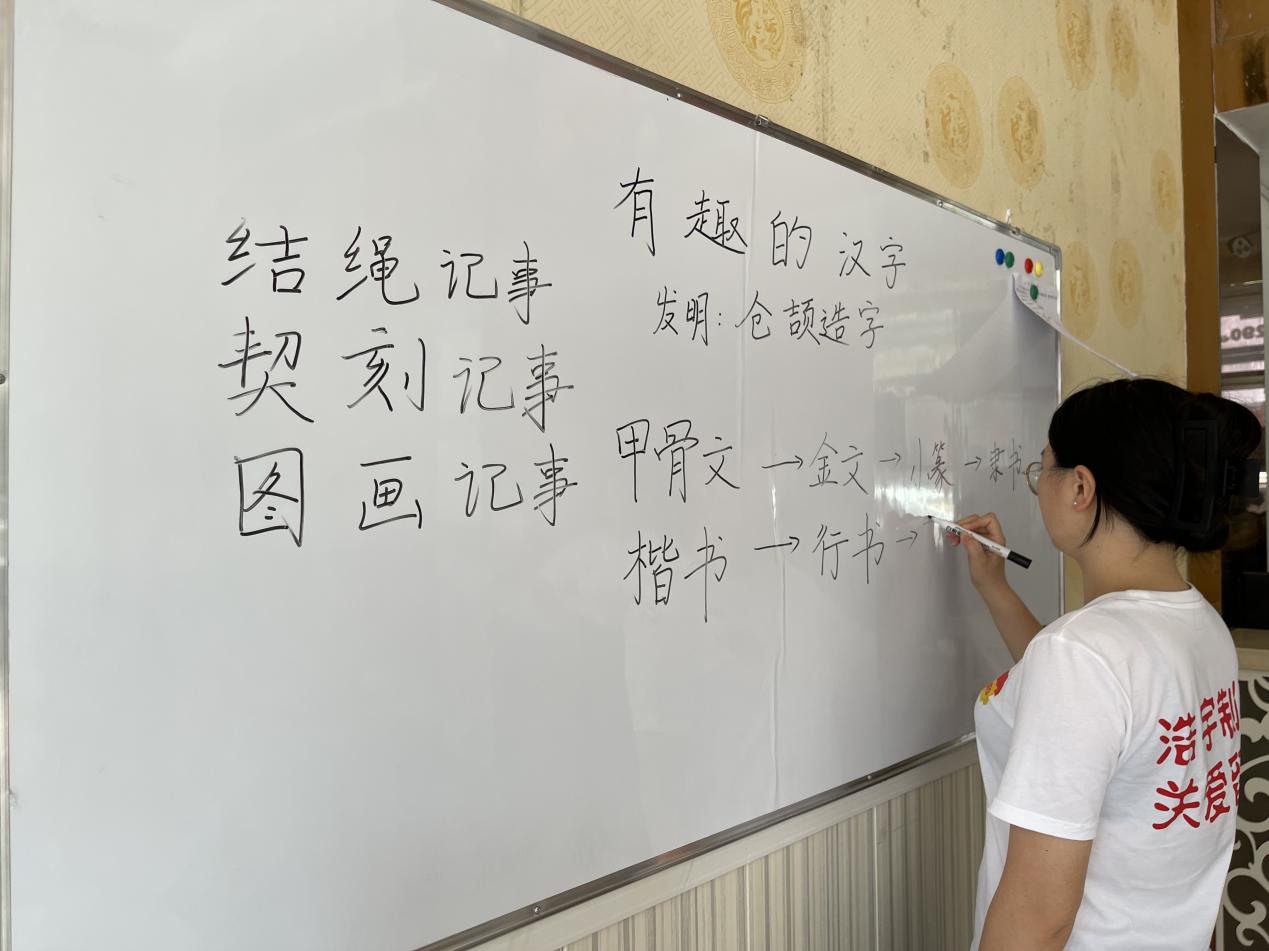 有趣的汉字
发明：仓颉造字
结绳记事
契刻记事
图画记事
甲骨文→金文→小篆→隶书
楷书→行书→
洁宇制
关爱
290